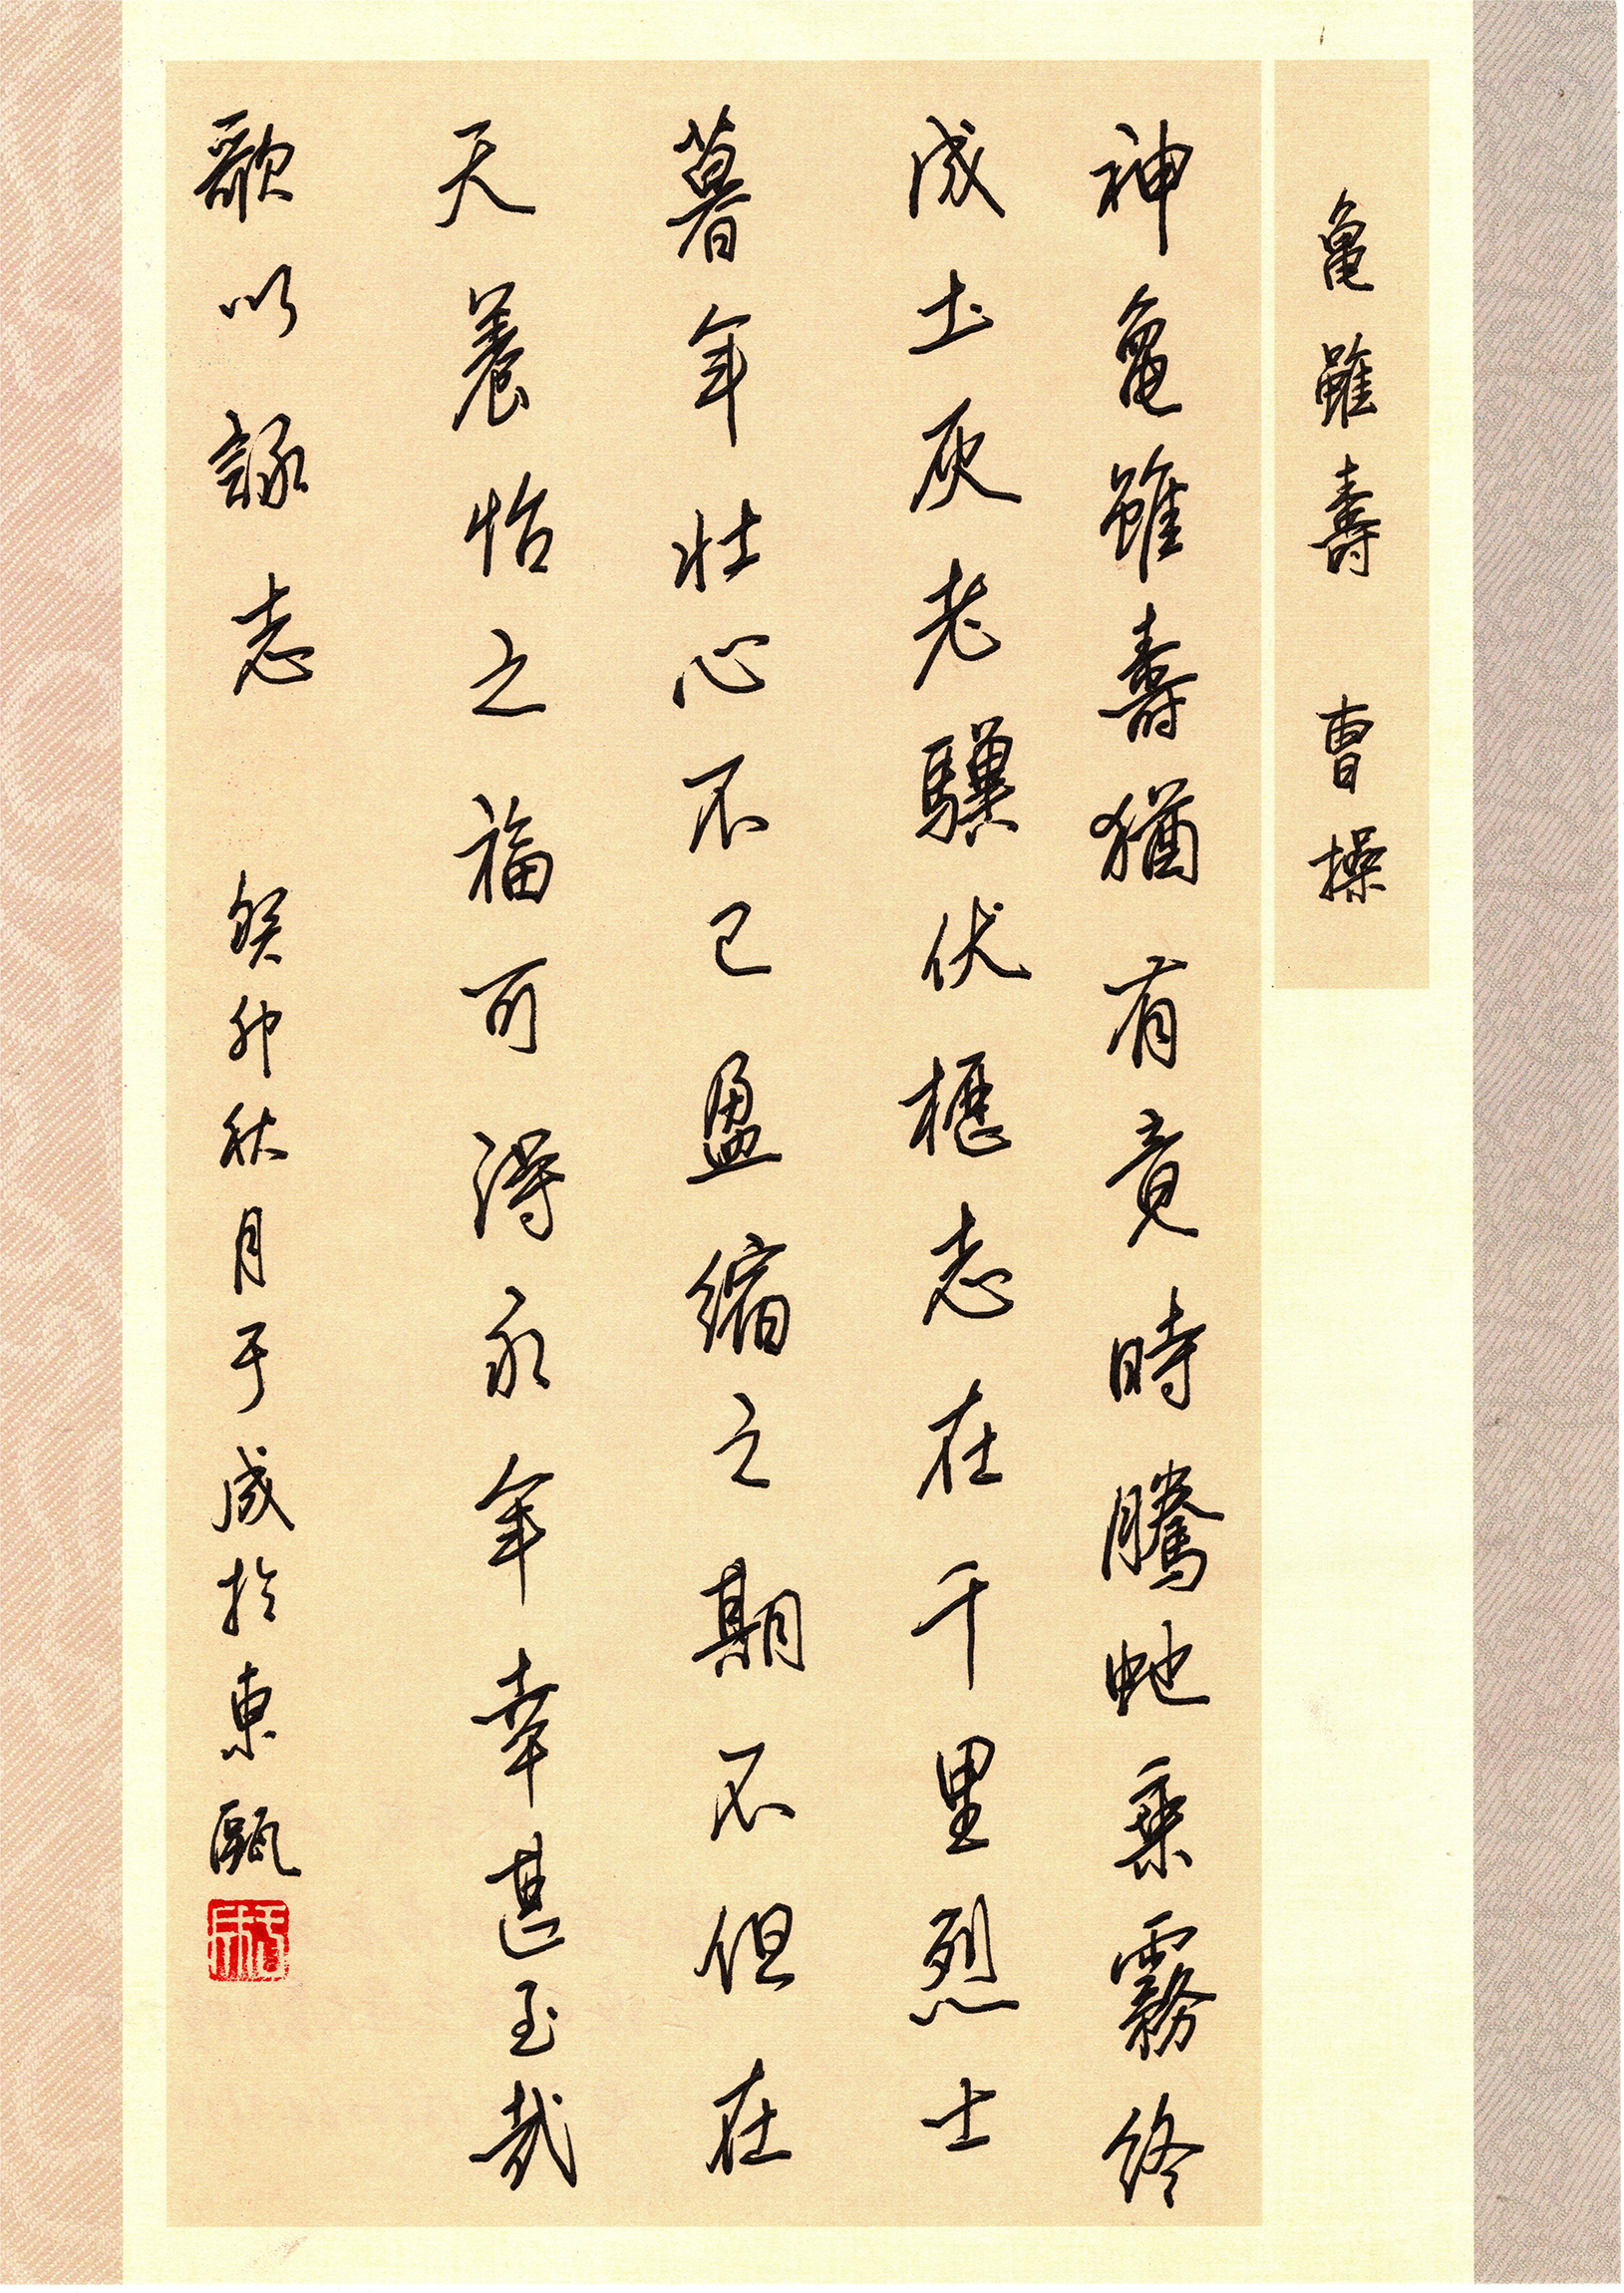 亀雖壽 曹操
神亀雖壽猶有竟時騰虵乘霧終
成土灰老驥伏櫪志在千里烈士
暮年壯心不已盈縮之期不但在
天養怡之福可得永年幸甚至哉
歌以詠志 癸卯秋月于成於東甌